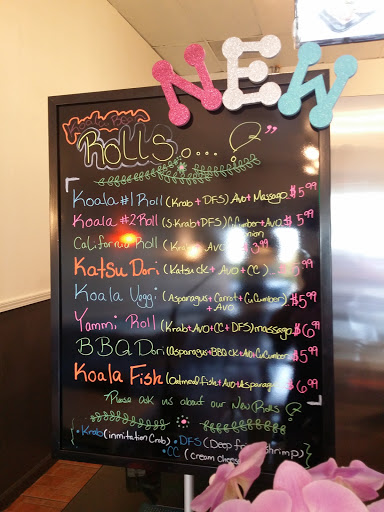 NEW
Koala Box
ROLLS....
Koala #1 Roll (Krab + DFS) Avo + Massago $5.99
Koala #2 Roll (S.Krab + DFS) Cucumber + Avo $5.99
onion
California Roll (Krab + Avo $3.99
Katsu Dori (Katsu ck + Avo + CC) $5.99
Koala Veggi (Asparagus + Carrot + Cucumber) $5.99
+ Avo
Yammi Roll (Krab + Avo + CC + DFS) massago $6.99
BBQ Dori (Asparagus + BBQ ck + Avo + Cucumber $5.99
Koala Fish (Oatmeal fish + Avo + Asparagus) $6.99
Please ask us about our New Rolls
• Krab (inmitation Crab) • DFS (Deep fried Shrimp)
• CC (cream cheese)